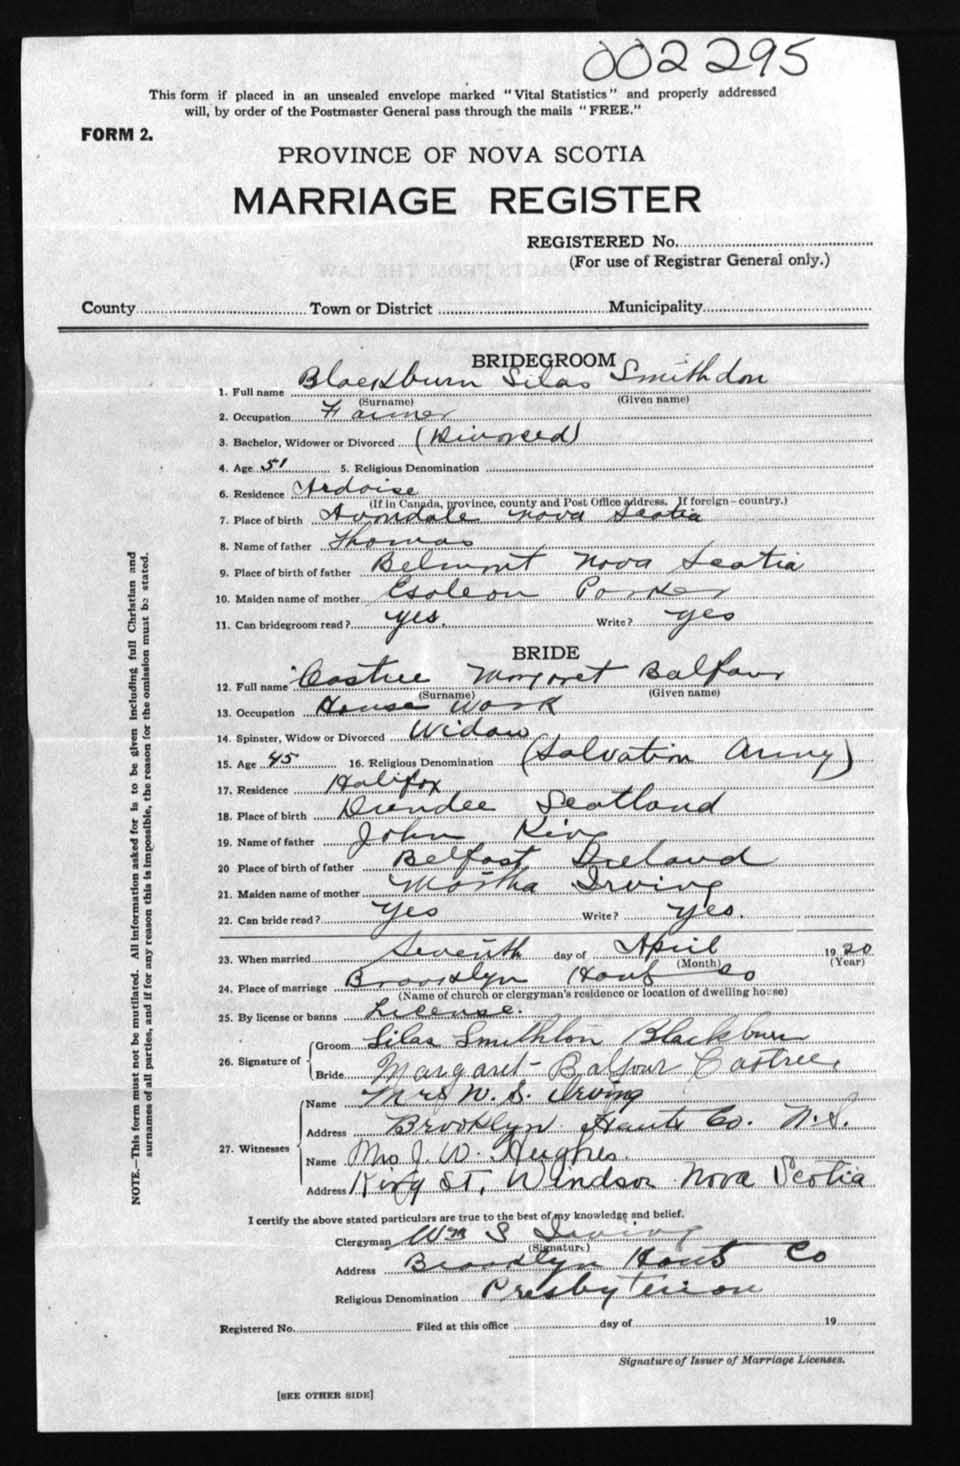 002295
This form if placed in an unsealed envelope marked "Vital Statistics" and properly addressed
will, by order of the Postmaster General pass through the mails "FREE."
FORM 2.
PROVINCE OF NOVA SCOTIA
MARRIAGE REGISTER
REGISTERED No.
(For use of Registrar General only.)
County Town or District Municipality
BRIDEGROOM
1. Full name Blackburn Silas Smithdon
(Surname) (Given name)
2. Occupation Farmer
3. Bachelor, Widower or Divorced (Divorced)
4. Age 51 5. Religious Denomination
6. Residence Ardoise
(If in Canada, province, county and Post Office address. If foreign—country.)
7. Place of birth Avondale Nova Scotia
8. Name of father Thomas
9. Place of birth of father Belmont Nova Scotia
10. Maiden name of mother Parker
11. Can bridegroom read? yes. Write? yes
BRIDE
12. Full name Castree Margaret Balfour
(Surname) (Given name)
13. Occupation House Work
14. Spinster, Widow or Divorced Widow
15. Age 45 16. Religious Denomination (Salvation Army)
17. Residence Halifax
18. Place of birth Dundee Scotland
19. Name of father John King
20 Place of birth of father Belfast Ireland
21. Maiden name of mother Martha Irving
22. Can bride read? Yes Write? yes.
23. When married Seventh day of April 1920
(Month) (Year)
24. Place of marriage Brooklyn Hants Co
(Name of church or clergyman's residence or location of dwelling house)
25. By license or banns License.
26. Signature of Groom Silas Smithton Blackburn
Bride Margaret Balfour Castree
27. Witnesses Name Mrs W. S. Irving
Address Brooklyn Hants Co. N.S.
Name Mrs J. W. Hughes.
Address King St, Windsor Nova Scotia
I certify the above stated particulars are true to the best of my knowledge and belief.
Clergyman Wm S Irving
(Signature)
Address Brooklyn Hants Co
Religious Denomination Presbyterian
Registered No. Filed at this office day of 19
Signature of Issuer of Marriage Licenses.
[SEE OTHER SIDE]
NOTE.—This form must not be mutilated. All information asked for is to be given including full Christian and
surnames of all parties, and if for any reason this is impossible, the reason for the omission must be stated.